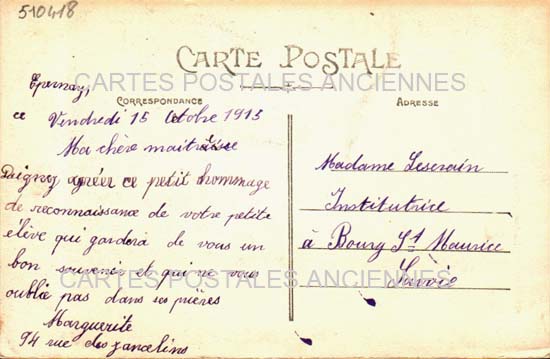 510418
CARTE POSTALE
CARTES POSTALES ANCIENNES
CORRESPONDANCE
ADRESSE
Epernay,
ce Vendredi 15 Octobre 1915
Ma chère maitresse
Daignez agréer ce petit hommage
de reconnaissance de votre petite
élève qui gardera de vous un
bon souvenir et qui ne vous
oublie pas dans ses prières
Marguerite
94 rue des Jancelins
Madame
Institutrice
à Bourg St Maurice
Savoie
CARTES POSTALES ANCIENNES